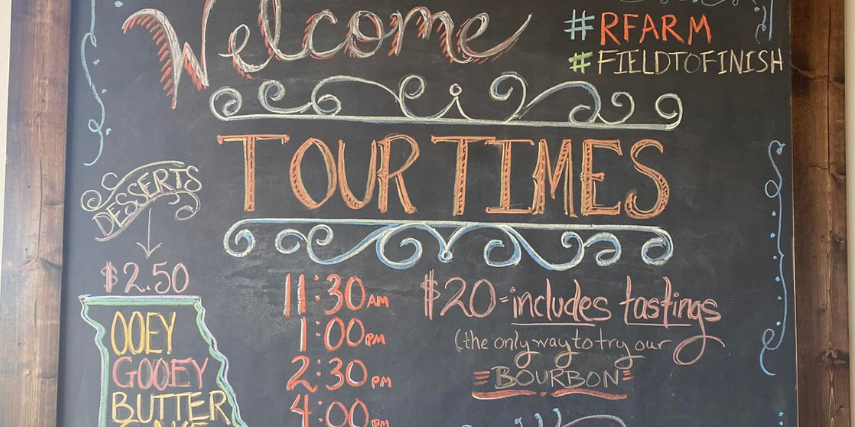 Welcome
#RFARM
#FIELDTOFINISH
TOUR TIMES
DESSERTS
$2.50
OOEY
GOOEY
BUTTER
CAKE
11:30 AM
1:00 PM
2:30 PM
4:00 PM
$20-includes tastings
(the only way to try our
BOURBON